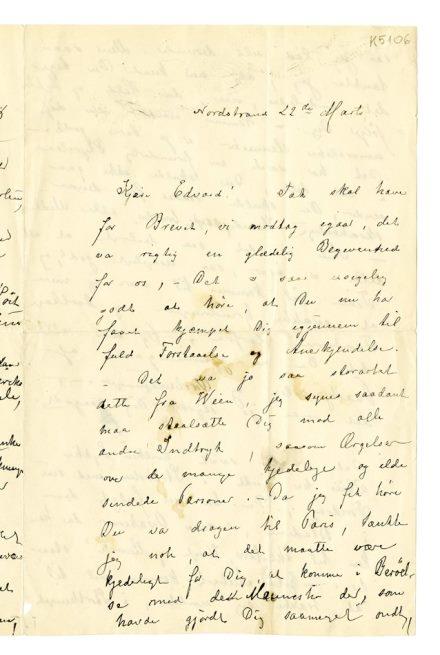 K5106
Nordstrand 22de Marts
Kjære Edvard! Tak skal have
for Brevet, vi modtog igaar, det
va rigtig en glædelig Begivenhed
for os, – Det saa
godt at høre, at Du nu har
faaet kjæmpet Dig igjennem til
fuld Forstaaelse og Anerkjendelse.
– Det va jo saa storartet
dette fra Wien, jeg synes saadant
maa staalsætte Dig mod alle
andre Indtryk, saasom Ærgelser
over de mange kjedelige og ilde
sindede Personer. – Da jeg fik høre
Du va dragen til Paris, tænkte
jeg nok, at det maatte være
kjedeligt for Dig, at komme i Berör-
se med de Mennesker der, som
havde gjørdt Dig saameget ondt,